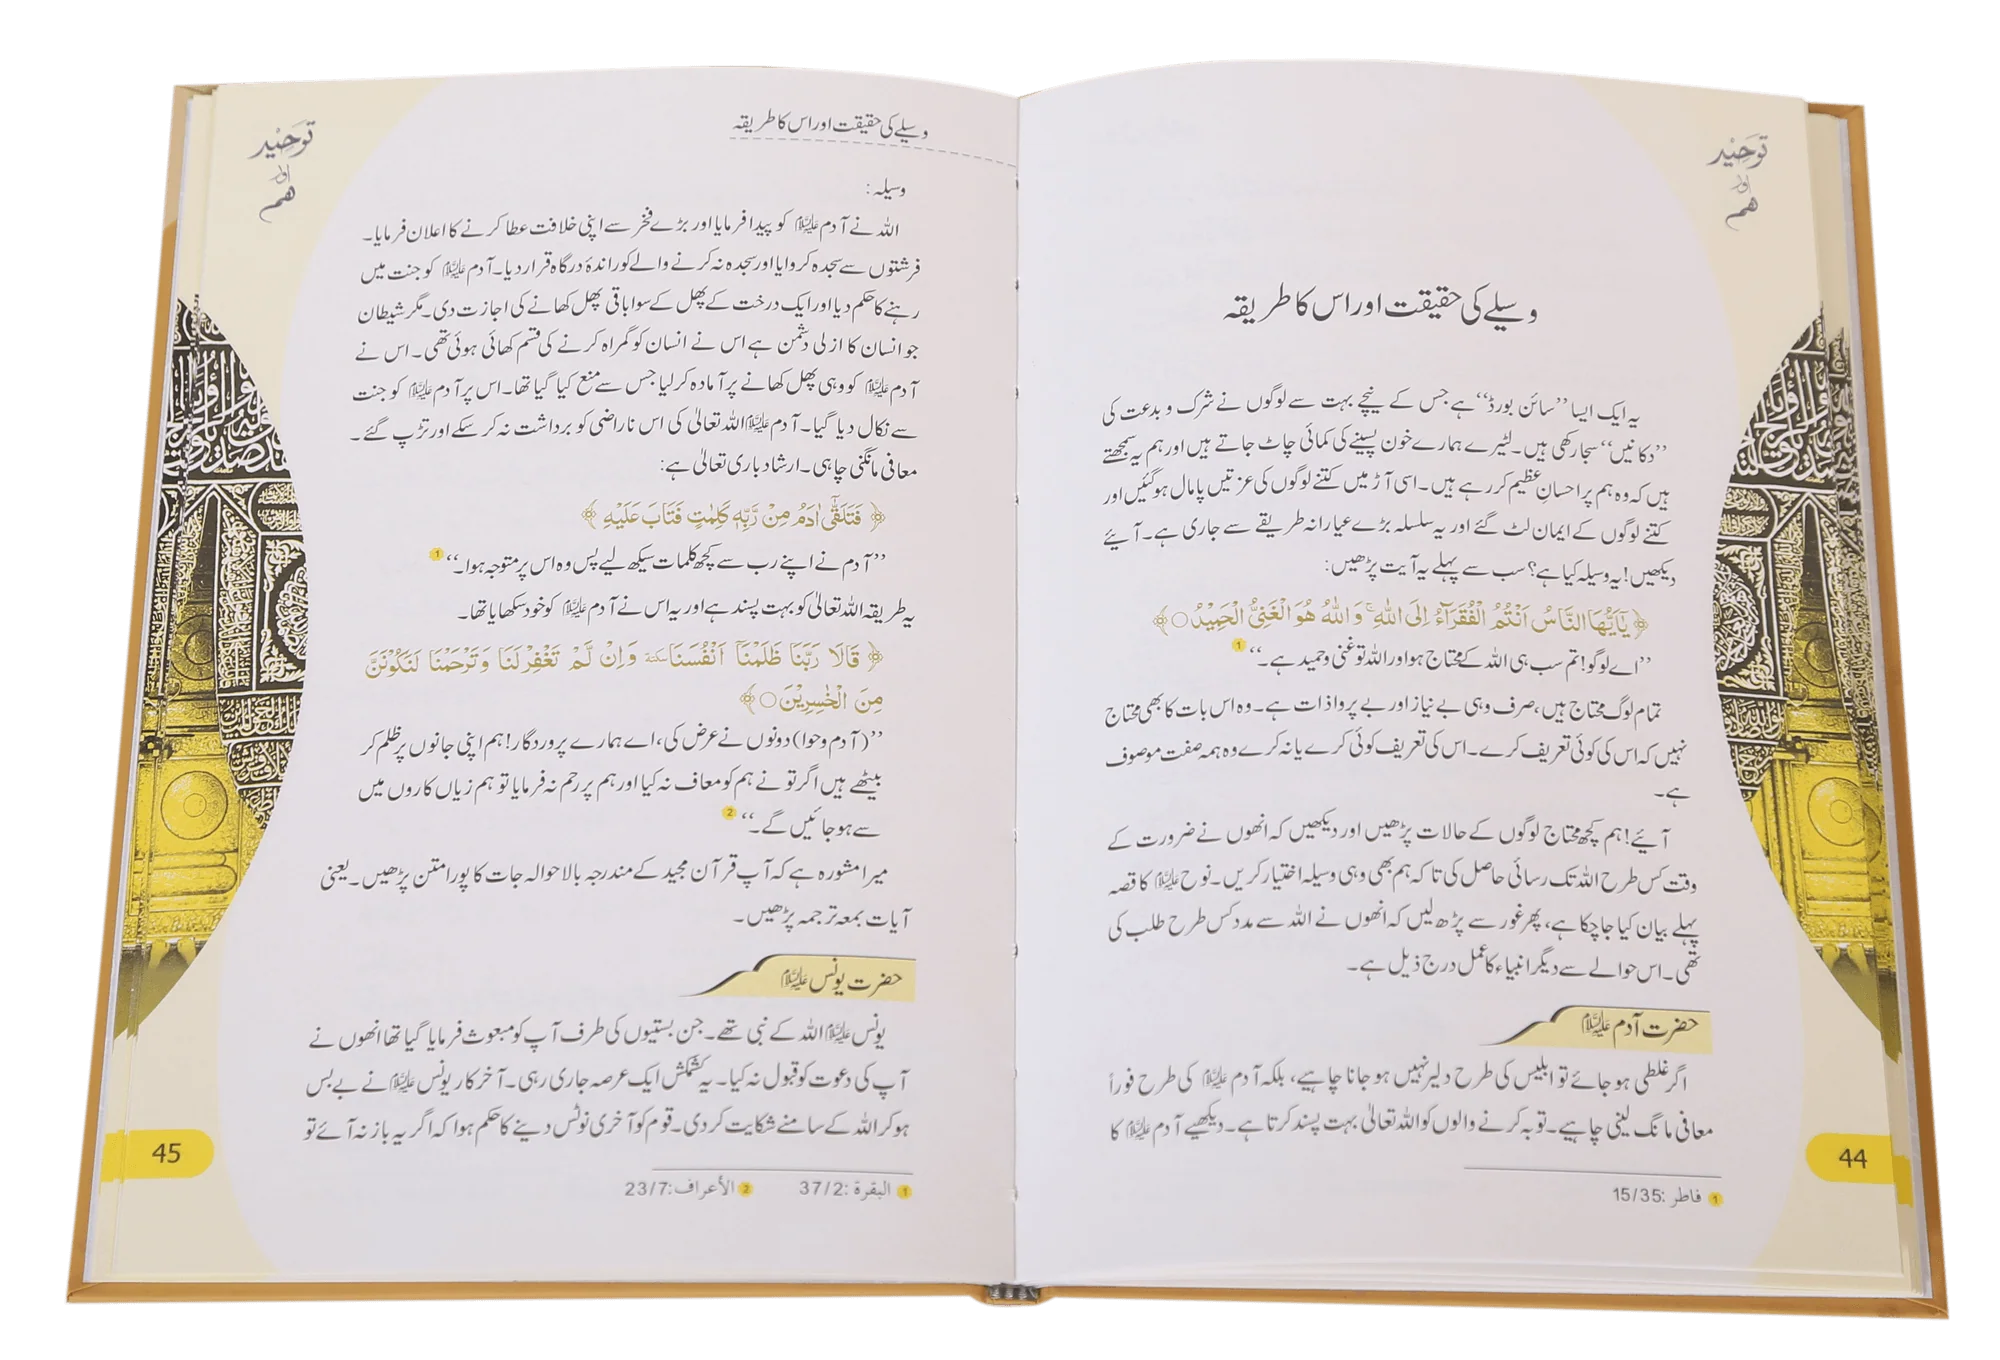 توحید
اور
ہم
وسیلے کی حقیقت اور اس کا طریقہ
یہ ایک ایسا ’’سائن بورڈ‘‘ ہے جس کے نیچے بہت سے لوگوں نے شرک و بدعت کی
’’دکانیں‘‘ سجا رکھی ہیں۔ لٹیرے ہمارے خون پسینے کی کمائی چاٹ جاتے ہیں اور ہم یہ سمجھتے
ہیں کہ وہ ہم پر احسانِ عظیم کر رہے ہیں۔ اسی آڑ میں کتنے لوگوں کی عزتیں پامال ہو گئیں اور
کتنے لوگوں کے ایمان لٹ گئے اور یہ سلسلہ بڑے عیارانہ طریقے سے جاری ہے۔ آیئے
دیکھیں! یہ وسیلہ کیا ہے؟ سب سے پہلے یہ آیت پڑھیں:
﴿ یٰۤاَیُّهَا النَّاسُ اَنْتُمُ الْفُقَرَآءُ اِلَی اللّٰهِ ۚ وَ اللّٰهُ هُوَ الْغَنِیُّ الْحَمِیْدُ ○ ﴾
’’اے لوگو! تم سب ہی اللہ کے محتاج ہو اور اللہ تو غنی و حمید ہے۔‘‘ 1
تمام لوگ محتاج ہیں، صرف وہی بے نیاز اور بے پروا ذات ہے۔ وہ اس بات کا بھی محتاج
نہیں کہ اس کی کوئی تعریف کرے۔ اس کی تعریف کوئی کرے یا نہ کرے وہ ہمہ صفت موصوف
ہے۔
آیئے! ہم کچھ محتاج لوگوں کے حالات پڑھیں اور دیکھیں کہ انھوں نے ضرورت کے
وقت کس طرح اللہ تک رسائی حاصل کی تاکہ ہم بھی وہی وسیلہ اختیار کریں۔ نوح علیہ السلام کا قصہ
پہلے بیان کیا جا چکا ہے، پھر غور سے پڑھ لیں کہ انھوں نے اللہ سے مدد کس طرح طلب کی
تھی۔ اس حوالے سے دیگر انبیاء کا عمل درج ذیل ہے۔
حضرت آدم علیہ السلام
اگر غلطی ہو جائے تو ابلیس کی طرح دلیر نہیں ہو جانا چاہیے، بلکہ آدم علیہ السلام کی طرح فوراً
معافی مانگ لینی چاہیے۔ توبہ کرنے والوں کو اللہ تعالیٰ بہت پسند کرتا ہے۔ دیکھیے آدم علیہ السلام کا
1 فاطر :15/35
44
توحید
اور
ہم
وسیلے کی حقیقت اور اس کا طریقہ
وسیلہ:
اللہ نے آدم علیہ السلام کو پیدا فرمایا اور بڑے فخر سے اپنی خلافت عطا کرنے کا اعلان فرمایا۔
فرشتوں سے سجدہ کروایا اور سجدہ نہ کرنے والے کو راندۂ درگاہ قرار دیا۔ آدم علیہ السلام کو جنت میں
رہنے کا حکم دیا اور ایک درخت کے پھل کے سوا باقی پھل کھانے کی اجازت دی۔ مگر شیطان
جو انسان کا ازلی دشمن ہے اس نے انسان کو گمراہ کرنے کی قسم کھائی ہوئی تھی۔ اس نے
آدم علیہ السلام کو وہی پھل کھانے پر آمادہ کر لیا جس سے منع کیا گیا تھا۔ اس پر آدم علیہ السلام کو جنت
سے نکال دیا گیا۔ آدم علیہ السلام اللہ تعالیٰ کی اس ناراضی کو برداشت نہ کر سکے اور تڑپ گئے۔
معافی مانگنی چاہی۔ ارشاد باری تعالیٰ ہے:
﴿ فَتَلَقّٰۤی اٰدَمُ مِنْ رَّبِّهٖ كَلِمٰتٍ فَتَابَ عَلَیْهِ ﴾
’’آدم نے اپنے رب سے کچھ کلمات سیکھ لیے پس وہ اس پر متوجہ ہوا۔‘‘ 1
یہ طریقہ اللہ تعالیٰ کو بہت پسند ہے اور یہ اس نے آدم علیہ السلام کو خود سکھایا تھا۔
﴿ قَالَا رَبَّنَا ظَلَمْنَاۤ اَنْفُسَنَا ٚ وَ اِنْ لَّمْ تَغْفِرْ لَنَا وَ تَرْحَمْنَا لَنَكُوْنَنَّ
مِنَ الْخٰسِرِیْنَ ○ ﴾
’’(آدم و حوا) دونوں نے عرض کی، اے ہمارے پروردگار! ہم اپنی جانوں پر ظلم کر
بیٹھے ہیں اگر تو نے ہم کو معاف نہ کیا اور ہم پر رحم نہ فرمایا تو ہم زیاں کاروں میں
سے ہو جائیں گے۔‘‘ 2
میرا مشورہ ہے کہ آپ قرآن مجید کے مندرجہ بالا حوالہ جات کا پورا متن پڑھیں۔ یعنی
آیات بمعہ ترجمہ پڑھیں۔
حضرت یونس علیہ السلام
یونس علیہ السلام اللہ کے نبی تھے۔ جن بستیوں کی طرف آپ کو مبعوث فرمایا گیا تھا انھوں نے
آپ کی دعوت کو قبول نہ کیا۔ یہ کشمکش ایک عرصہ جاری رہی۔ آخر کار یونس علیہ السلام نے بے بس
ہو کر اللہ کے سامنے شکایت کر دی۔ قوم کو آخری نوٹس دینے کا حکم ہوا کہ اگر یہ باز نہ آئے تو
1 البقرة :37/2 2 الأعراف:23/7
45